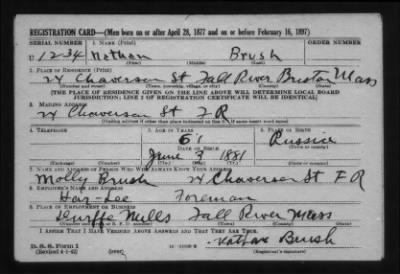 REGISTRATION CARD—(Men born on or after April 28, 1877 and on or before February 16, 1897)
SERIAL NUMBER 1. NAME (Print) ORDER NUMBER
U 1234 Nathan Brush
(First) (Middle) (Last)
2. PLACE OF RESIDENCE (Print)
St Fall River Bristol Mass
(Number and street) (Town, township, village, or city) (County) (State)
[THE PLACE OF RESIDENCE GIVEN ON THE LINE ABOVE WILL DETERMINE LOCAL BOARD
JURISDICTION; LINE 2 OF REGISTRATION CERTIFICATE WILL BE IDENTICAL]
3. MAILING ADDRESS
St F R
[Mailing address if other than place indicated on line 2. If same insert word same]
4. TELEPHONE 5. AGE IN YEARS 6. PLACE OF BIRTH
Russia
DATE OF BIRTH
June 3 1881
(Exchange) (Number) (Mo.) (Day) (Yr.) (State or country)
7. NAME AND ADDRESS OF PERSON WHO WILL ALWAYS KNOW YOUR ADDRESS
Molly Brush St F R
8. EMPLOYER'S NAME AND ADDRESS
Har-Lee Foreman
9. PLACE OF EMPLOYMENT OR BUSINESS
Durffe Mills Fall River Mass
(Number and street or R. F. D. number) (Town) (County) (State)
I AFFIRM THAT I HAVE VERIFIED ABOVE ANSWERS AND THAT THEY ARE TRUE.
Nathan Brush
D. S. S. Form 1
(Revised 4-1-42) (over)